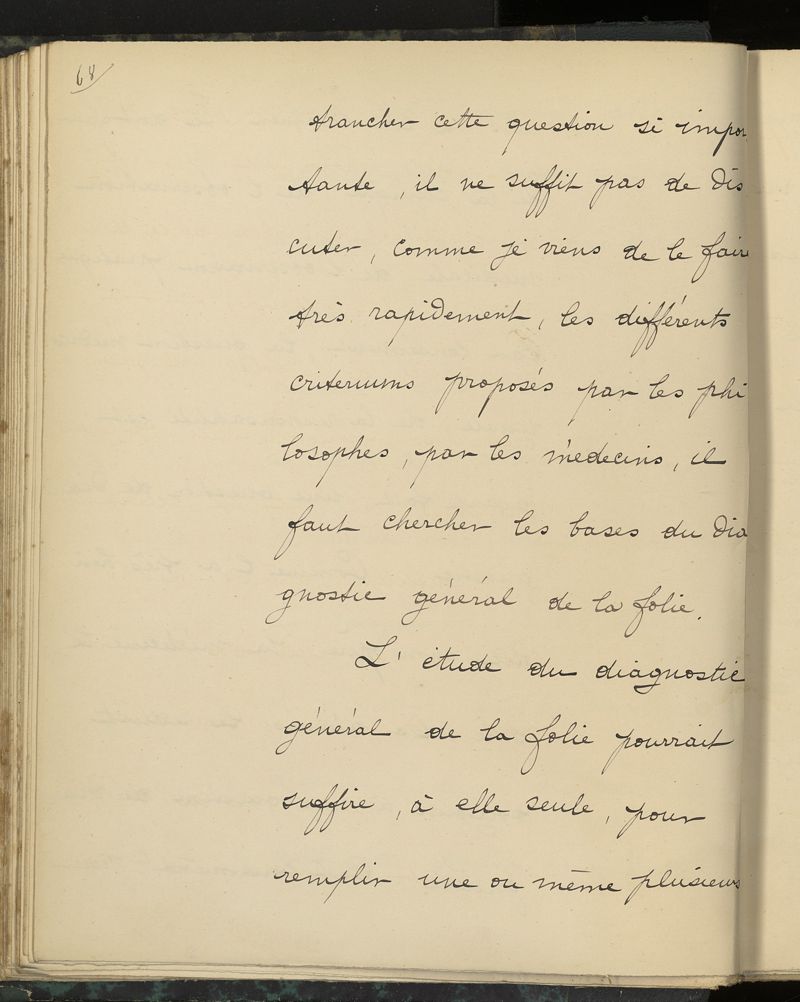 68
trancher cette question si impor
tante, il ne suffit pas de dis
cuter, comme je viens de le faire
très rapidement, les différents
criteriums proposés par les phi
losophes, par les médecins, il
faut chercher les bases du dia
gnostic général de la folie.
L'étude du diagnostic
général de la folie pourrait
suffire, à elle seule, pour
remplir une ou même plusieurs